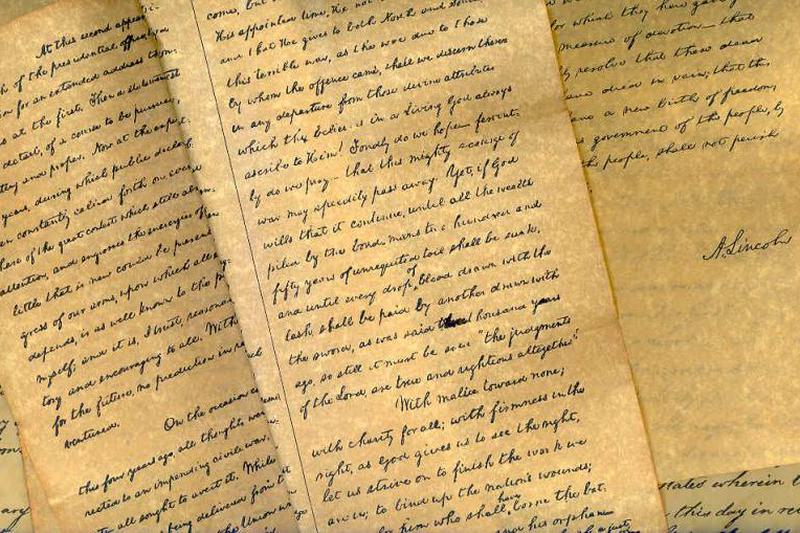 At this second appear-
of the presidential
for an extended address than
at the first. Then a statement
detail, of a course to be pursued,
and proper. Now at the expi-
years, during which public declar
constantly called forth on every
of the great contest which still
attention, and engrosses the energies of
little that is new could be present
gress of our arms, upon which all
depends, is as well known to the
myself; and it is, I trust, reasona
tory and encouraging to all. With
for the future, no prediction in re
ventured.
On the occasion
this four years ago, all thoughts were
rected to an impending civil war.
all sought to avert it. While
being delivered from
the Union
come, but
His appointed time, He
and that He gives to both North and
this terrible war, as the woe due to those
by whom the offence came, shall we discern there
in any departure from those divine attributes
which the believers in a Living God always
ascribe to Him? Fondly do we hope— fervent-
ly do we pray— that this mighty scourge of
war may speedily pass away. Yet, if God
wills that it continue, until all the wealth
piled by the bond-man's two hundred and
fifty years of unrequited toil shall be sunk,
and until every drop of blood drawn with the
lash, shall be paid by another drawn with
the sword, as was said three thousand years
ago, so still it must be said "the judgments
of the Lord, are true and righteous altogether"
With malice toward none;
with charity for all; with firmness in the
right, as God gives us to see the right,
let us strive on to finish the work we
are in; to bind up the nation's wounds;
for him who shall have borne the bat-
and his orphan
for which they here gave
measure of devotion— that
resolve that these dead
died in vain; that this
have a new birth of freedom,
government of the people, by
the people, shall not perish
A. Lincoln
states wherein
this day in